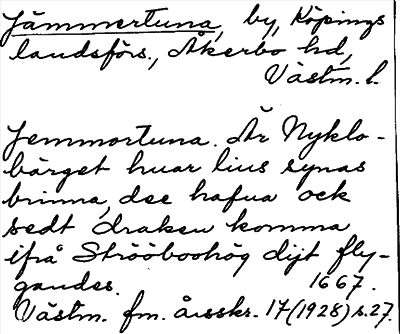 Jämmertuna, by, Köpings
landsförs., Åkerbo hd,
Västm. l.
Jemmortuna. Är Nyklo-
bärget huar lius synas
brinna, dee hafua ock
sedt draken komma
ifrå Ströobohög dijt fly-
gandes. 1667.
Västm. fm. årsskr. 17 (1928) s. 27.